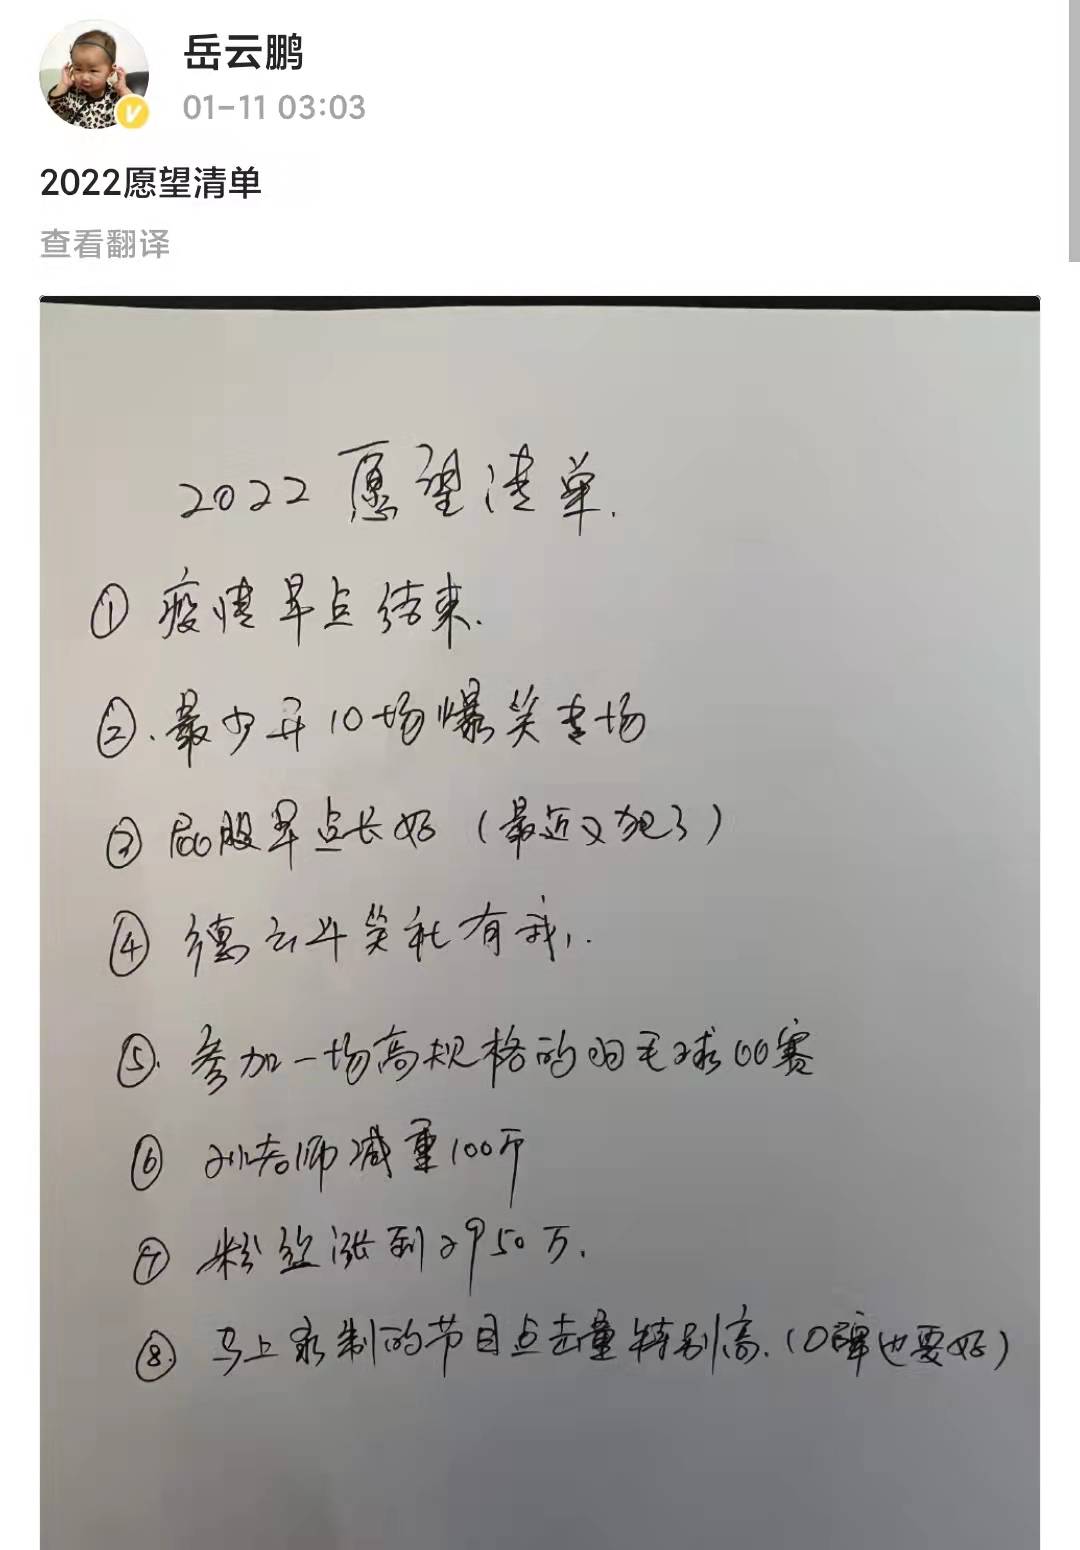 岳云鹏
01-11 03:03
2022愿望清单
查看翻译
2022愿望清单.
① 疫情早点结束.
②.最少开10场爆笑专场
③ 屁股早点长好(最近又犯了)
④ 德云斗笑社有我,..
⑤.参加一场高规格的羽毛球比赛
⑥ 孙老师减重100斤
⑦ 粉丝涨到2950万.
⑧.马上录制的节目点击量特别高.(口碑也要好)